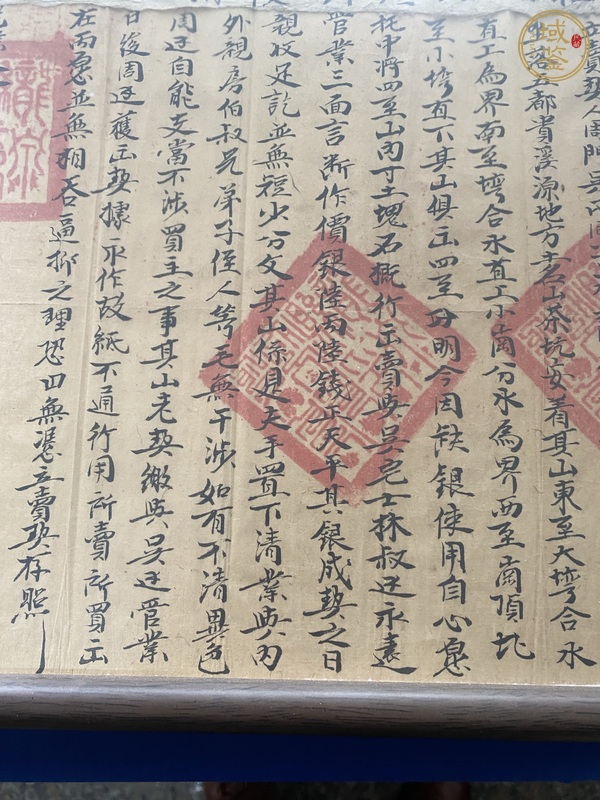 賣契人周門吳
坐落五都貴溪源地方土名山茶坑安着其山東至大塆合水
直上為界南至塆合水直上小崗分水為界西至崗頂北
至小塆直下其山俱正四至分明今因缺銀使用自心愿
托中將四至山內寸土塊石概行出賣與吳宅士林叔廷永遠
管業三面言斷作價銀陸兩陸錢正天平其銀成契之日
親收足訖並無短少分文其山係是天手置下清業與內
外親房伯叔兄弟子侄人等毛無干涉如有不清異色
周廷自能支當不涉買主之事其山老契繳與吳廷管業
日後周廷獲出契據永作故紙不通行用所賣所買出
在兩愿並無相吞逼抑之理恐口無憑立賣契存照
域鑒